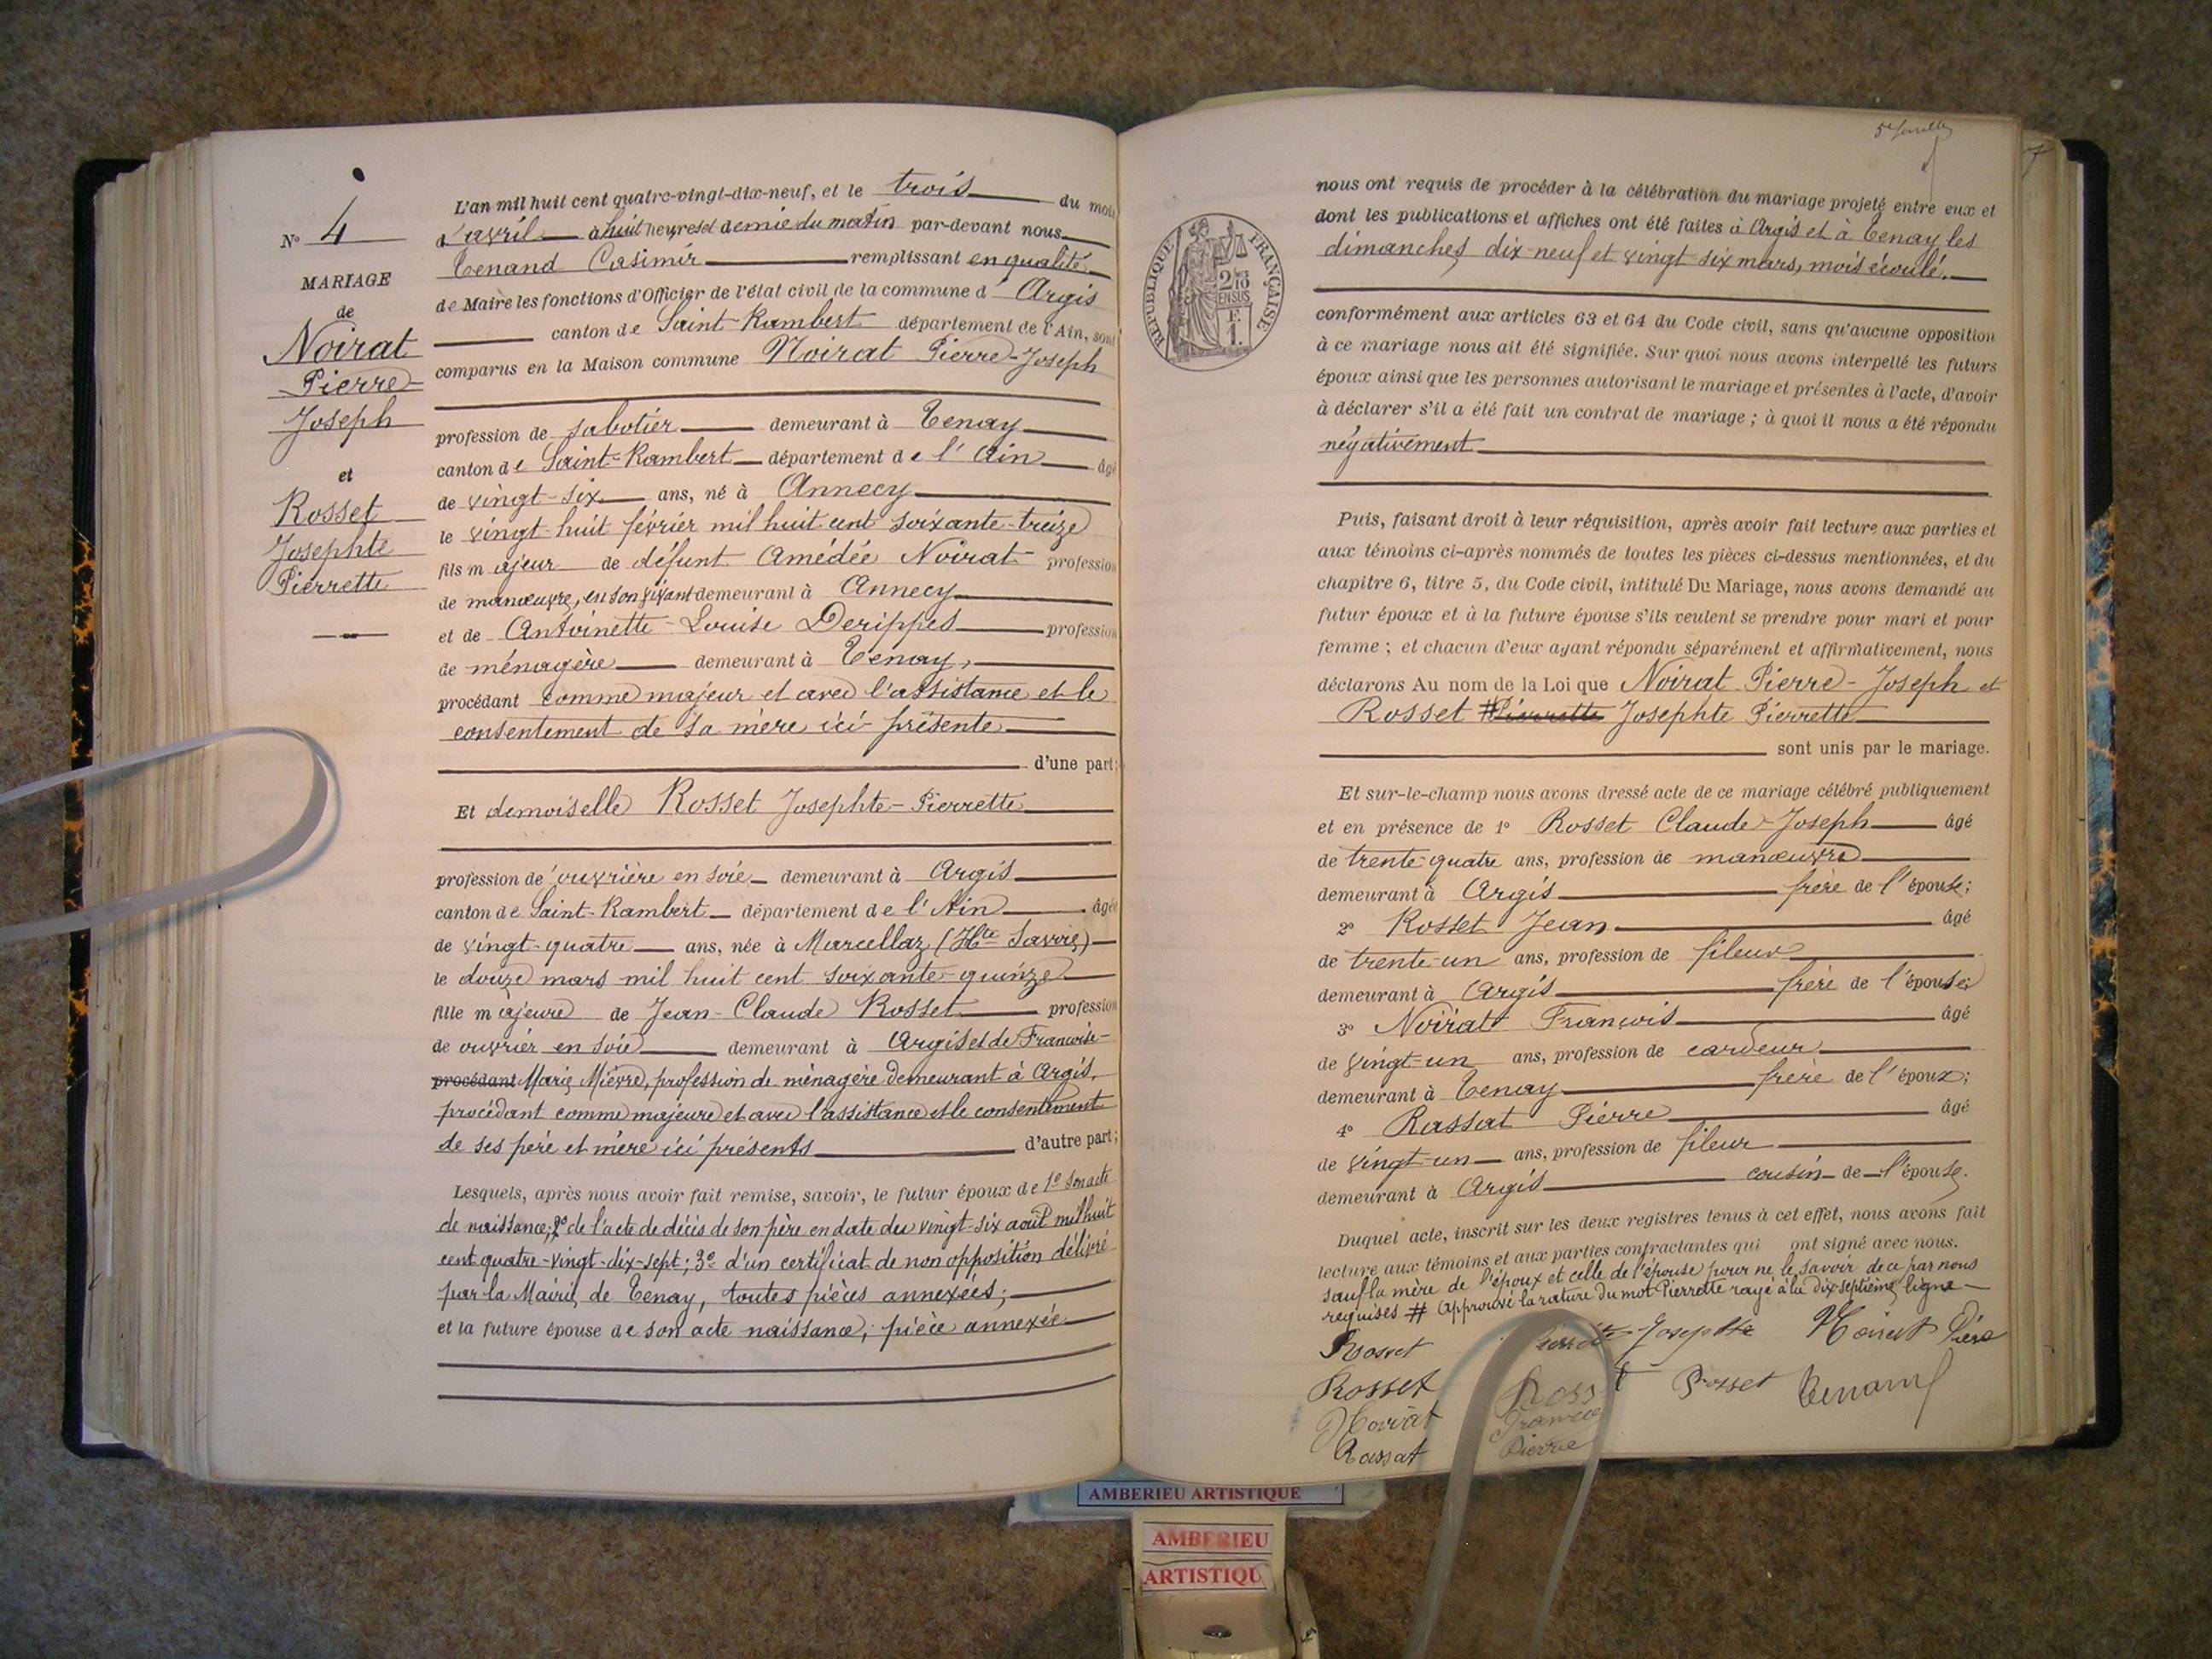 N° 4
MARIAGE
de
Noirat
Pierre
Joseph
et
Rosset
Josephte
Pierrette
L'an mil huit cent quatre-vingt-dix-neuf, et le trois du mois
d'avril à huit heures et demie du matin par-devant nous
Tenand Casimir remplissant en qualité
de Maire les fonctions d'Officier de l'état civil de la commune d' Argis
canton de Saint-Rambert département de l'Ain, sont
comparus en la Maison commune Noirat Pierre-Joseph
profession de sabotier demeurant à Tenay
canton de Saint-Rambert département de l'Ain âgé
de vingt-six ans, né à Annecy
le vingt-huit février mil huit cent soixante-treize
fils majeur de défunt Amédée Noirat profession
de manœuvre, en son vivant demeurant à Annecy
et de Antoinette-Louise Derippes profession
de ménagère demeurant à Tenay,
procédant comme majeur et avec l'assistance et le
consentement de sa mère ici présente
d'une part;
Et demoiselle Rosset Josephte-Pierrette
profession de ouvrière en soie demeurant à Argis
canton de Saint-Rambert département de l'Ain âgée
de vingt-quatre ans, née à Marcellaz (Hte Savoie)
le douze mars mil huit cent soixante-quinze
fille majeure de Jean-Claude Rosset profession
de ouvrier en soie demeurant à Argis et de Françoise-
procédant Marie Mièvre, profession de ménagère demeurant à Argis,
procédant comme majeure et avec l'assistance et le consentement
de ses père et mère ici présents d'autre part;
Lesquels, après nous avoir fait remise, savoir, le futur époux de 1° son acte
de naissance; 2° de l'acte de décès de son père en date du vingt-six août mil huit
cent quatre-vingt-dix-sept; 3° d'un certificat de non opposition délivré
par la Mairie de Tenay, toutes pièces annexées;
et la future épouse de son acte naissance, pièce annexée
5e feuillet
REPUBLIQUE FRANÇAISE
2/10
EN SUS
F.
1.
nous ont requis de procéder à la célébration du mariage projeté entre eux et
dont les publications et affiches ont été faites à Argis et à Tenay les
dimanches dix-neuf et vingt-six mars, mois écoulé,
conformément aux articles 63 et 64 du Code civil, sans qu'aucune opposition
à ce mariage nous ait été signifiée. Sur quoi nous avons interpellé les futurs
époux ainsi que les personnes autorisant le mariage et présentes à l'acte, d'avoir
à déclarer s'il a été fait un contrat de mariage; à quoi il nous a été répondu
négativement
Puis, faisant droit à leur réquisition, après avoir fait lecture aux parties et
aux témoins ci-après nommés de toutes les pièces ci-dessus mentionnées, et du
chapitre 6, titre 5, du Code civil, intitulé Du Mariage, nous avons demandé au
futur époux et à la future épouse s'ils veulent se prendre pour mari et pour
femme; et chacun d'eux ayant répondu séparément et affirmativement, nous
déclarons Au nom de la Loi que Noirat Pierre-Joseph et
Rosset # Pierrette Josephte Pierrette
sont unis par le mariage.
Et sur-le-champ nous avons dressé acte de ce mariage célébré publiquement
et en présence de 1° Rosset Claude-Joseph âgé
de trente-quatre ans, profession de manœuvre
demeurant à Argis frère de l'épouse;
2° Rosset Jean âgé
de trente-un ans, profession de fileur
demeurant à Argis frère de l'épouse;
3° Noirat François âgé
de vingt-un ans, profession de cardeur
demeurant à Tenay frère de l'époux;
4° Rassat Pierre âgé
de vingt-un ans, profession de fileur
demeurant à Argis cousin de l'épouse.
Duquel acte, inscrit sur les deux registres tenus à cet effet, nous avons fait
lecture aux témoins et aux parties contractantes qui ont signé avec nous.
sauf la mère de l'époux et celle de l'épouse pour ne le savoir de ce par nous
requises # Approuvé la rature du mot Pierrette rayé à la dix-septième ligne
Rosset Josephte Noirat Pierre
Rosset Ross t Rosset Tenand
Noirat
Rassat Pierre
AMBERIEU ARTISTIQUE
AMBERIEU
ARTISTIQU